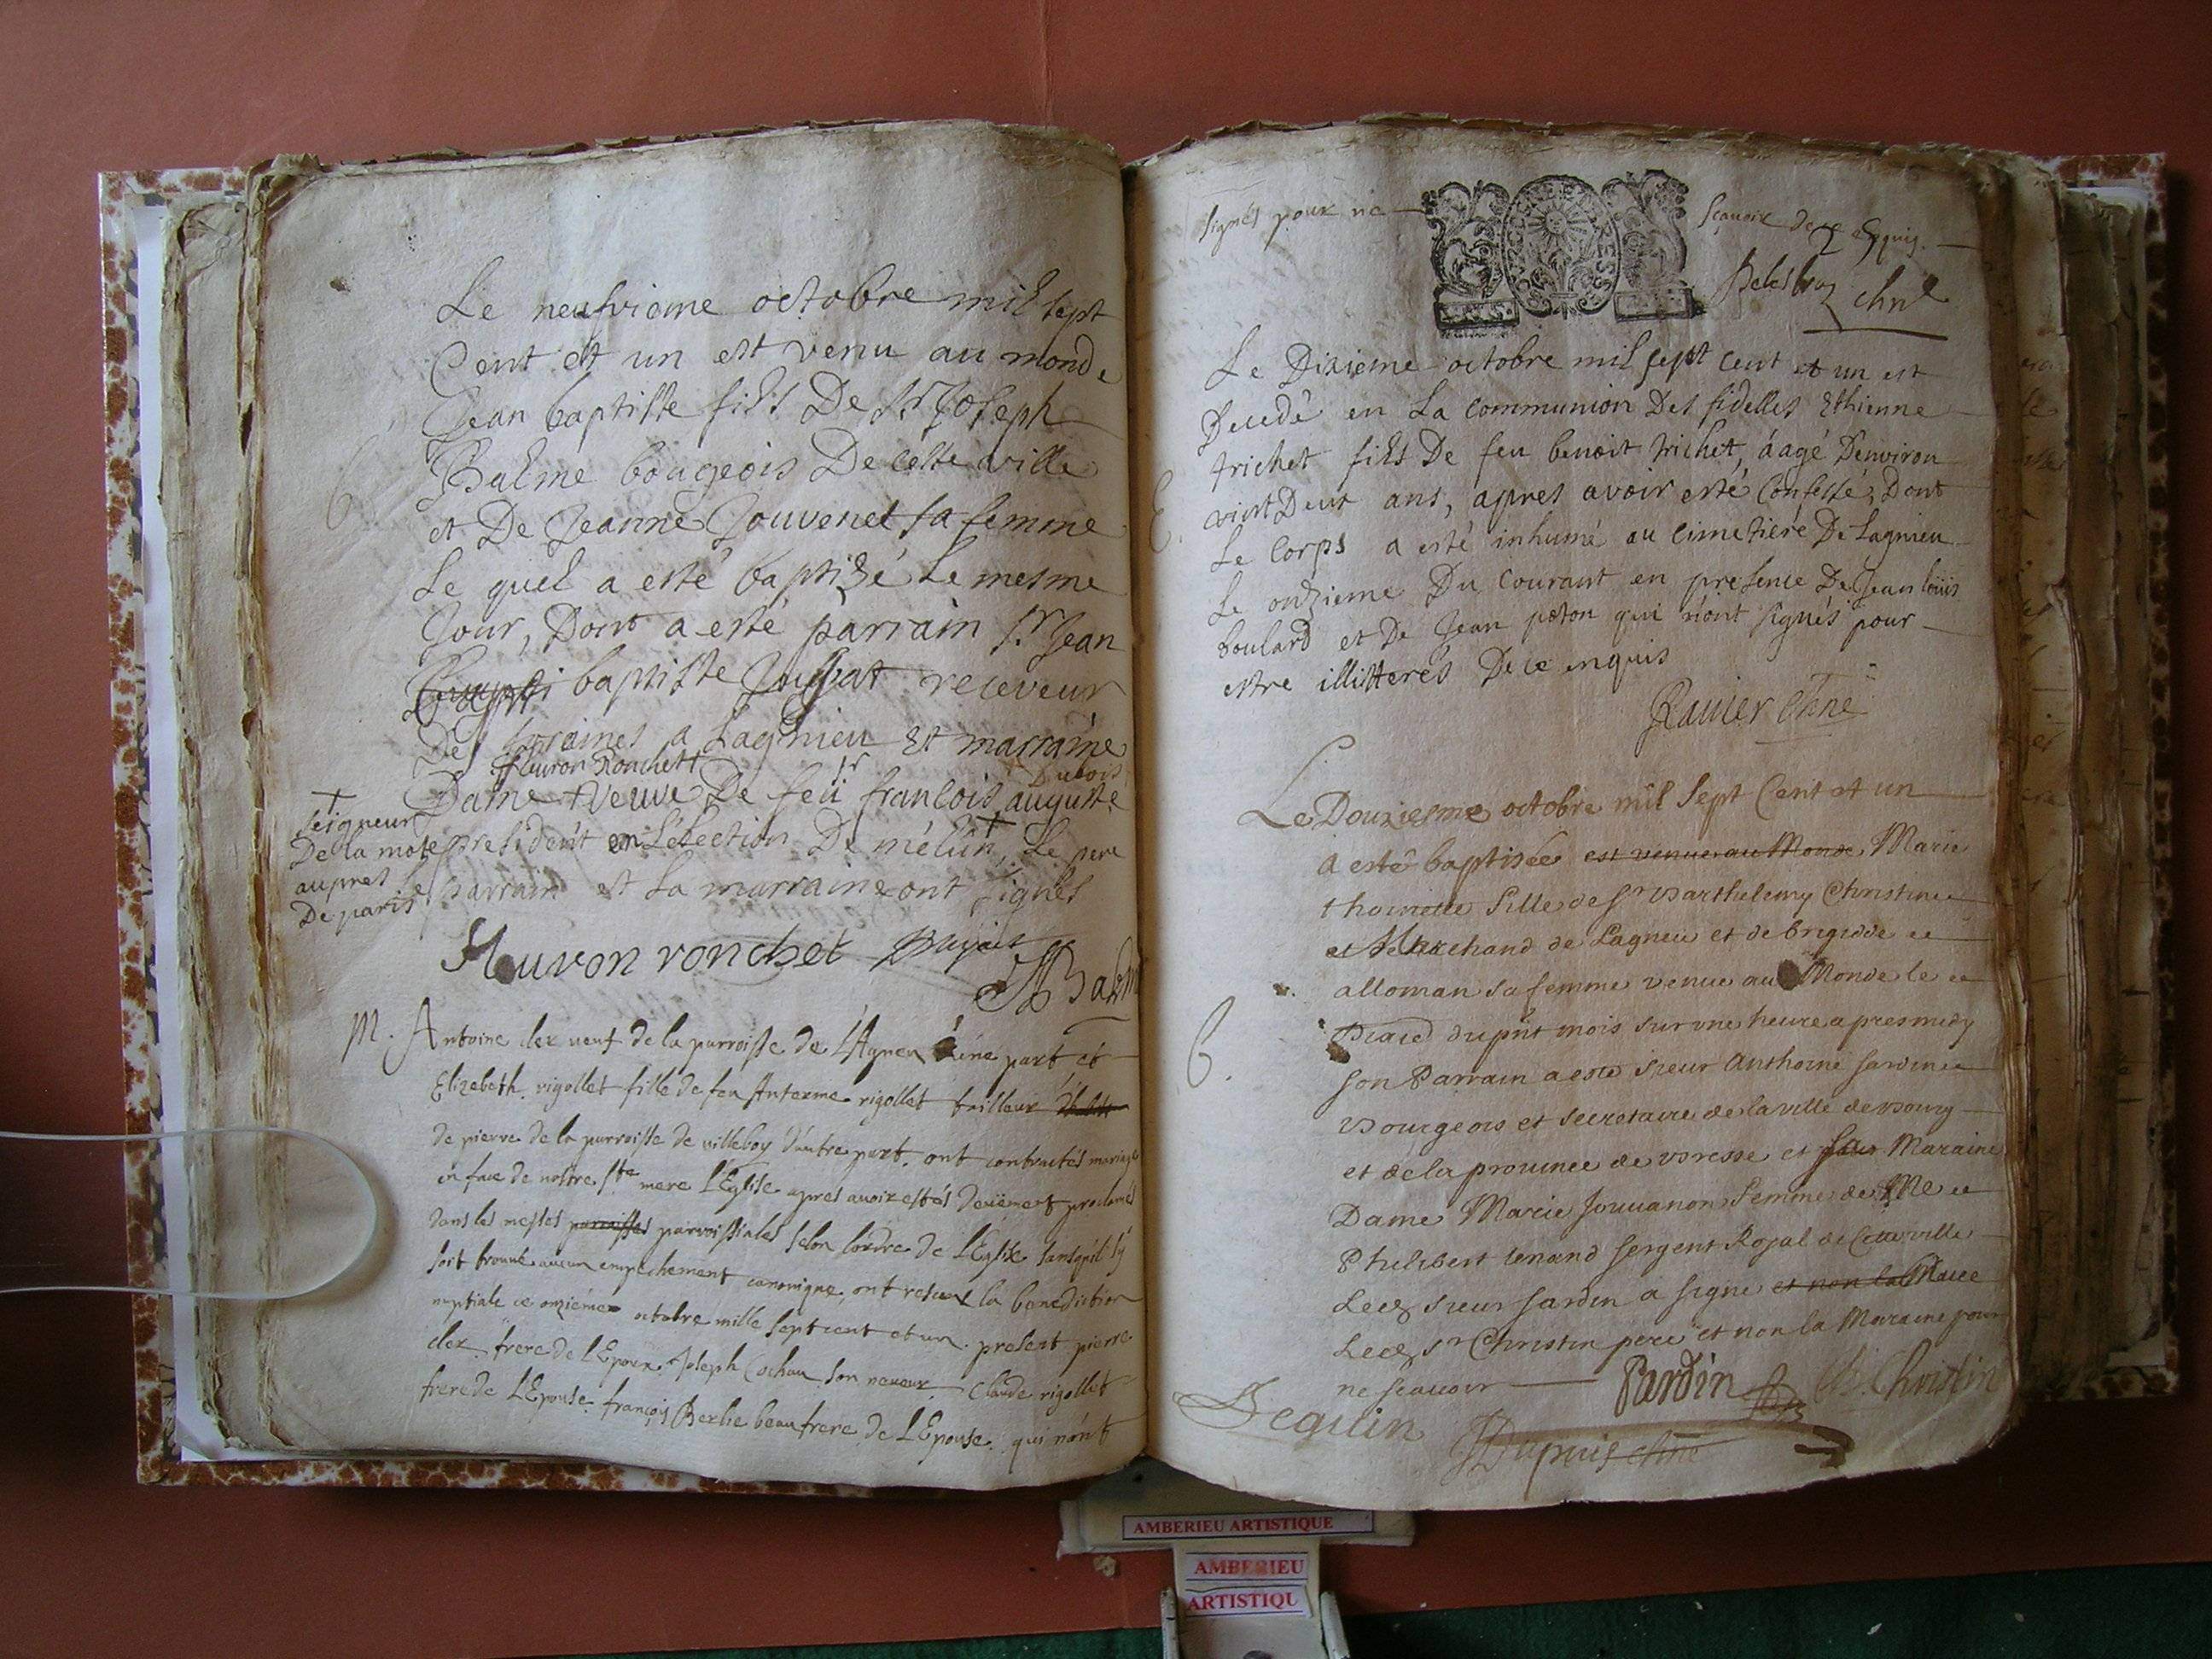 Le neufvieme octobre mil sept
Cent et un est venu au monde
Jean baptiste fils De Sr Joseph
Balme bougeois De cette ville
et De Jeanne Jouvenet sa femme
Le quel a esté baptizé Le mesme
Jour, Dont a esté parrain Sr Jean
baptiste receveur
Des a Lagnieu Et marraine
fleuron Ronchet
Dubois
Dame + veuve De feu Sr francois auguste
president en Lélection De mélun + Le pere
parrain et La marraine ont signés
+
seigneur
De la mote
aupres
De paris
B
fleuron ronchet
Balme
M. Antoine clex veuf de la parroisse de L'Agneu une part et
Elizabeth rigollet fille de feu Anterme rigollet tailleur
de pierre de la parroisse de villeboy d'autre part. ont contractés mariage
en face de nostre Ste mere L'Eglise apres avoir estés deüement proclamés
dans les messes parroisses parroissiales selon lordre de L'Eglise sans qu'il sy
soit trouué aucun empechement canonique ont receu la benediction
nuptiale ce onzieme octobre mille sept cent et un present pierre
clex frere de L'Epoux Joseph Cochau son neueux Claude rigollet
frere de L'Epouse françois Berlie beaufrere de L'Epouse qui n'ont
signés pour ne sçauoir de ce enquis
chne
Le Dixieme octobre mil sept cent et un est
Decedé en La communion Des fidelles Ethienne
trichet fils De feu benoit trichet, áagé D'environ
vint Deux ans, apres avoir esté Confessé, Dont
Le Corps a esté inhumé au cimetiere De Lagnieu
Le onzieme Du Courant en presence De Jean loüis
boulard et De Jean poton qui n'ont signés pour
estre illitterés De ce enquis
Ravier chne
Le Douziesme octobre mil sept Cent et un
a esté baptisée est venue au Monde Marie
thoinette fille de Sr Barthelemy Christin
et Marchand de Lagneu et de brigidde
alloman sa femme venue au Monde le
du pnt mois sur une heure apres midy
son Parrain a esté sieur Anthoine Jardin
Bourgeois et secretaire de la ville de Bourg
et de la prouince de bresse et sa Maraine
Dame Marie Jouuanon femme de Me
Philibert tenand sergent Royal de Cette ville
Led sieur Jardin a signé et non la Mare
Led Sr Christin pere et non la Maraine pour
ne scauoir
B.
Jardin
Christin
Sequin
Dupuis chne
AMBERIEU ARTISTIQUE
AMBERIEU
ARTISTIQU